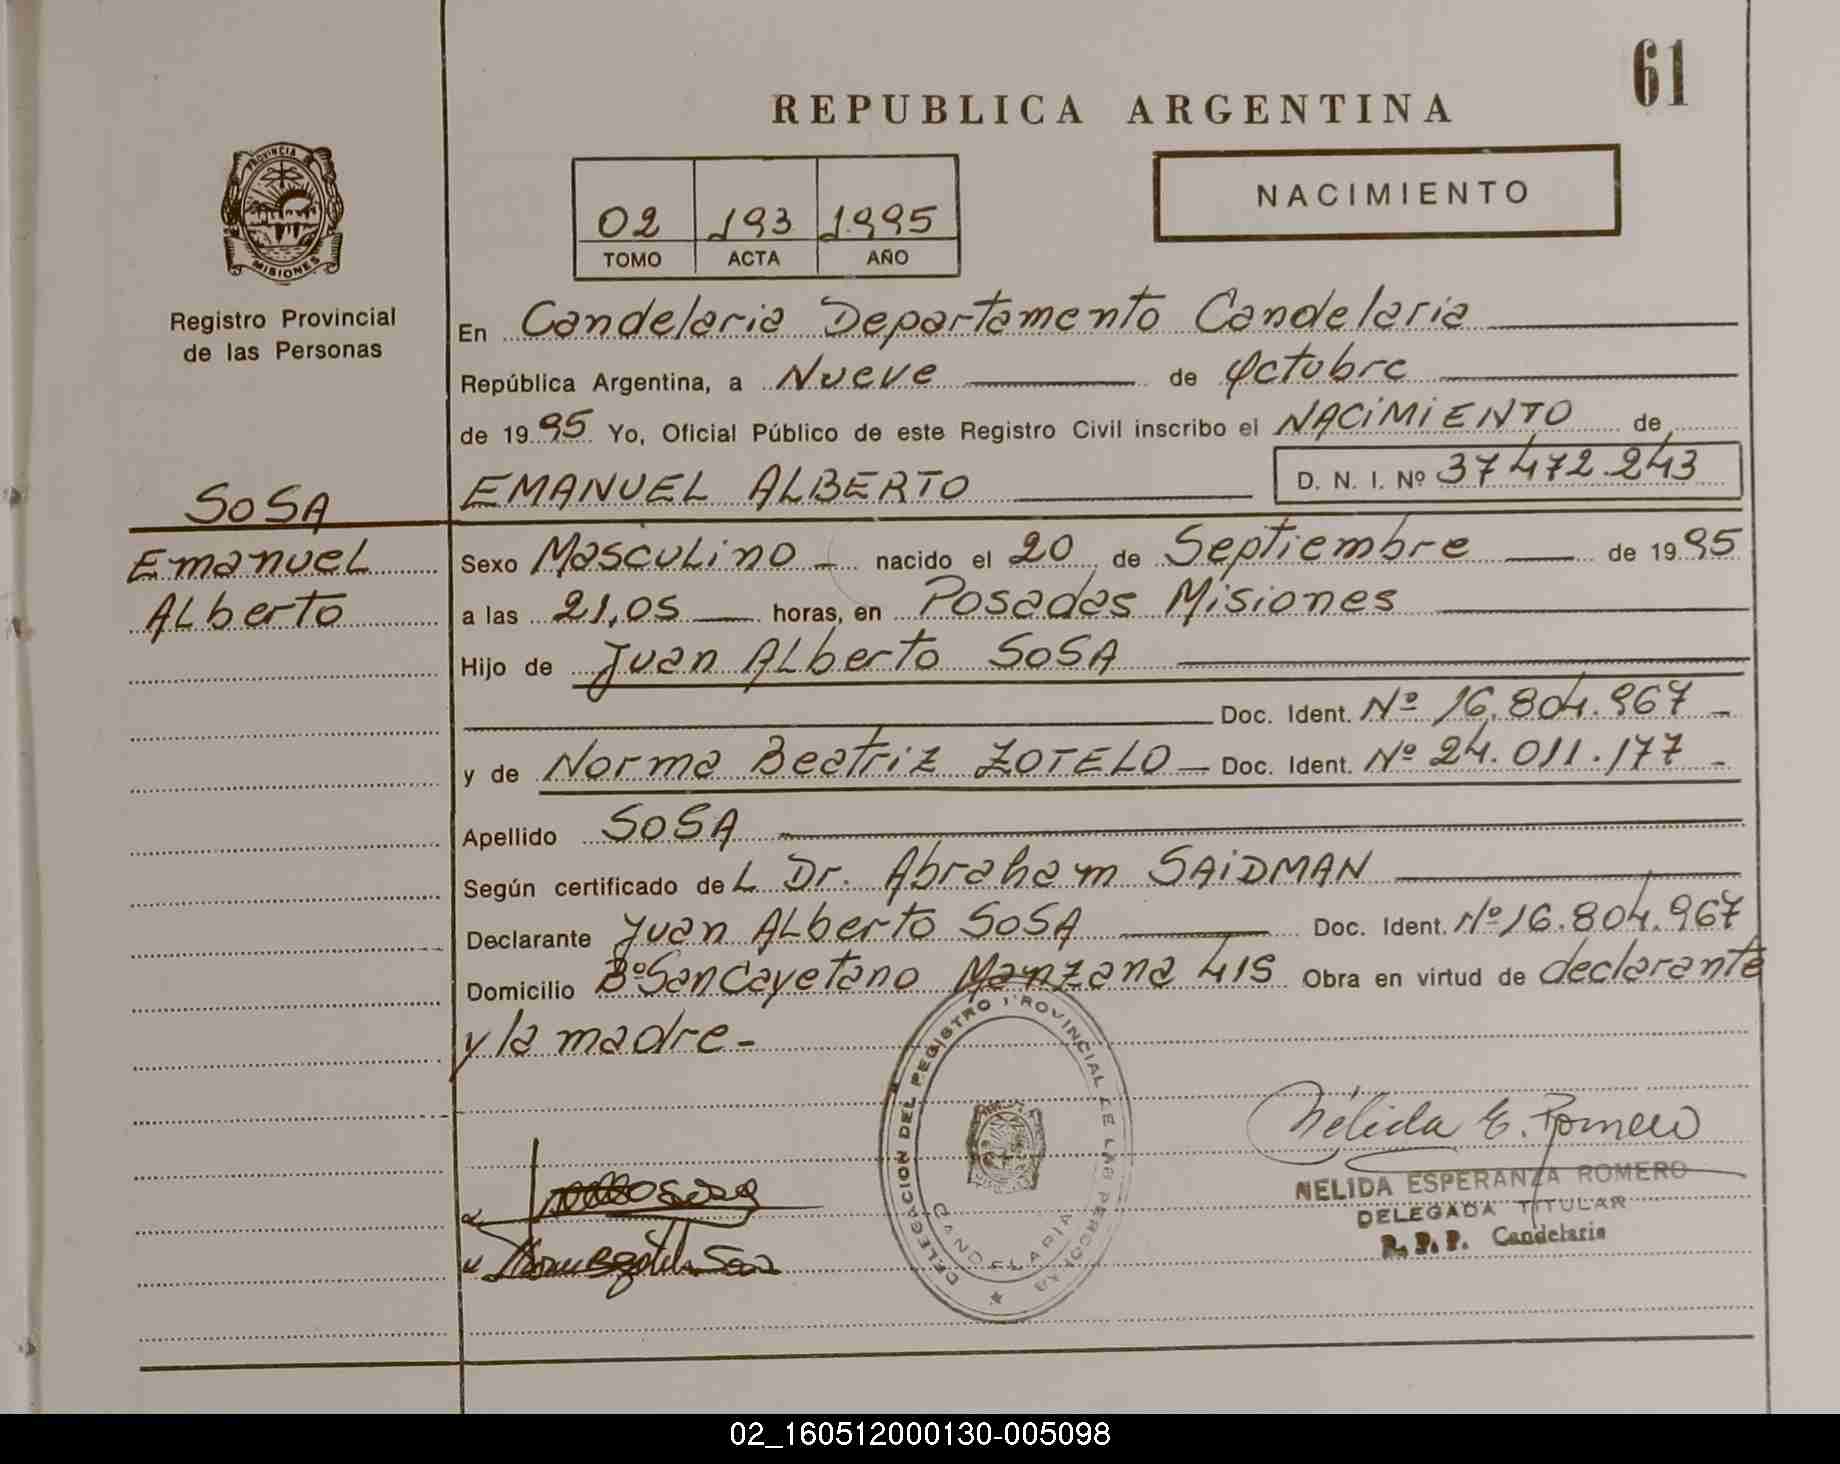 61
REPUBLICA ARGENTINA
NACIMIENTO
02 193 1995
TOMO ACTA AÑO
PROVINCIA DE
MISIONES
Registro Provincial
de las Personas
En Candelaria Departamento Candelaria
República Argentina, a Nueve de Octubre
de 1995 Yo, Oficial Público de este Registro Civil inscribo el NACIMIENTO de
EMANUEL ALBERTO D. N. I. Nº 37472.243
SOSA
Emanuel
Alberto
Sexo Masculino nacido el 20 de Septiembre de 1995
a las 21,05 horas, en Posadas Misiones
Hijo de Juan Alberto SOSA
Doc. Ident. Nº 16.804.967 -
y de Norma Beatriz ZOTELO - Doc. Ident. Nº 24.011.177 -
Apellido SOSA
Según certificado de L Dr. Abraham SAIDMAN
Declarante Juan Alberto SOSA Doc. Ident. Nº 16.804.967
Domicilio Bº San Cayetano Manzana 415 Obra en virtud de declarante
y la madre -
DELEGACION DEL REGISTRO PROVINCIAL DE LAS PERSONAS
CANDELARIA
Nélida E. Romero
NELIDA ESPERANZA ROMERO
DELEGADA TITULAR
R. P. P. Candelaria
02_160512000130-005098